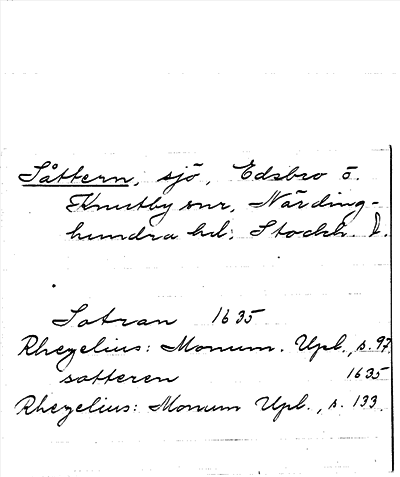 Såttern, sjö, Edsbro o.
Knutby snr, Närding-
hundra hd, Stockh. l.
Sotran 1635
Rhezelius: Monum. Upl., s. 97.
sotteren 1635
Rhezelius: Monum Upl., s. 133.